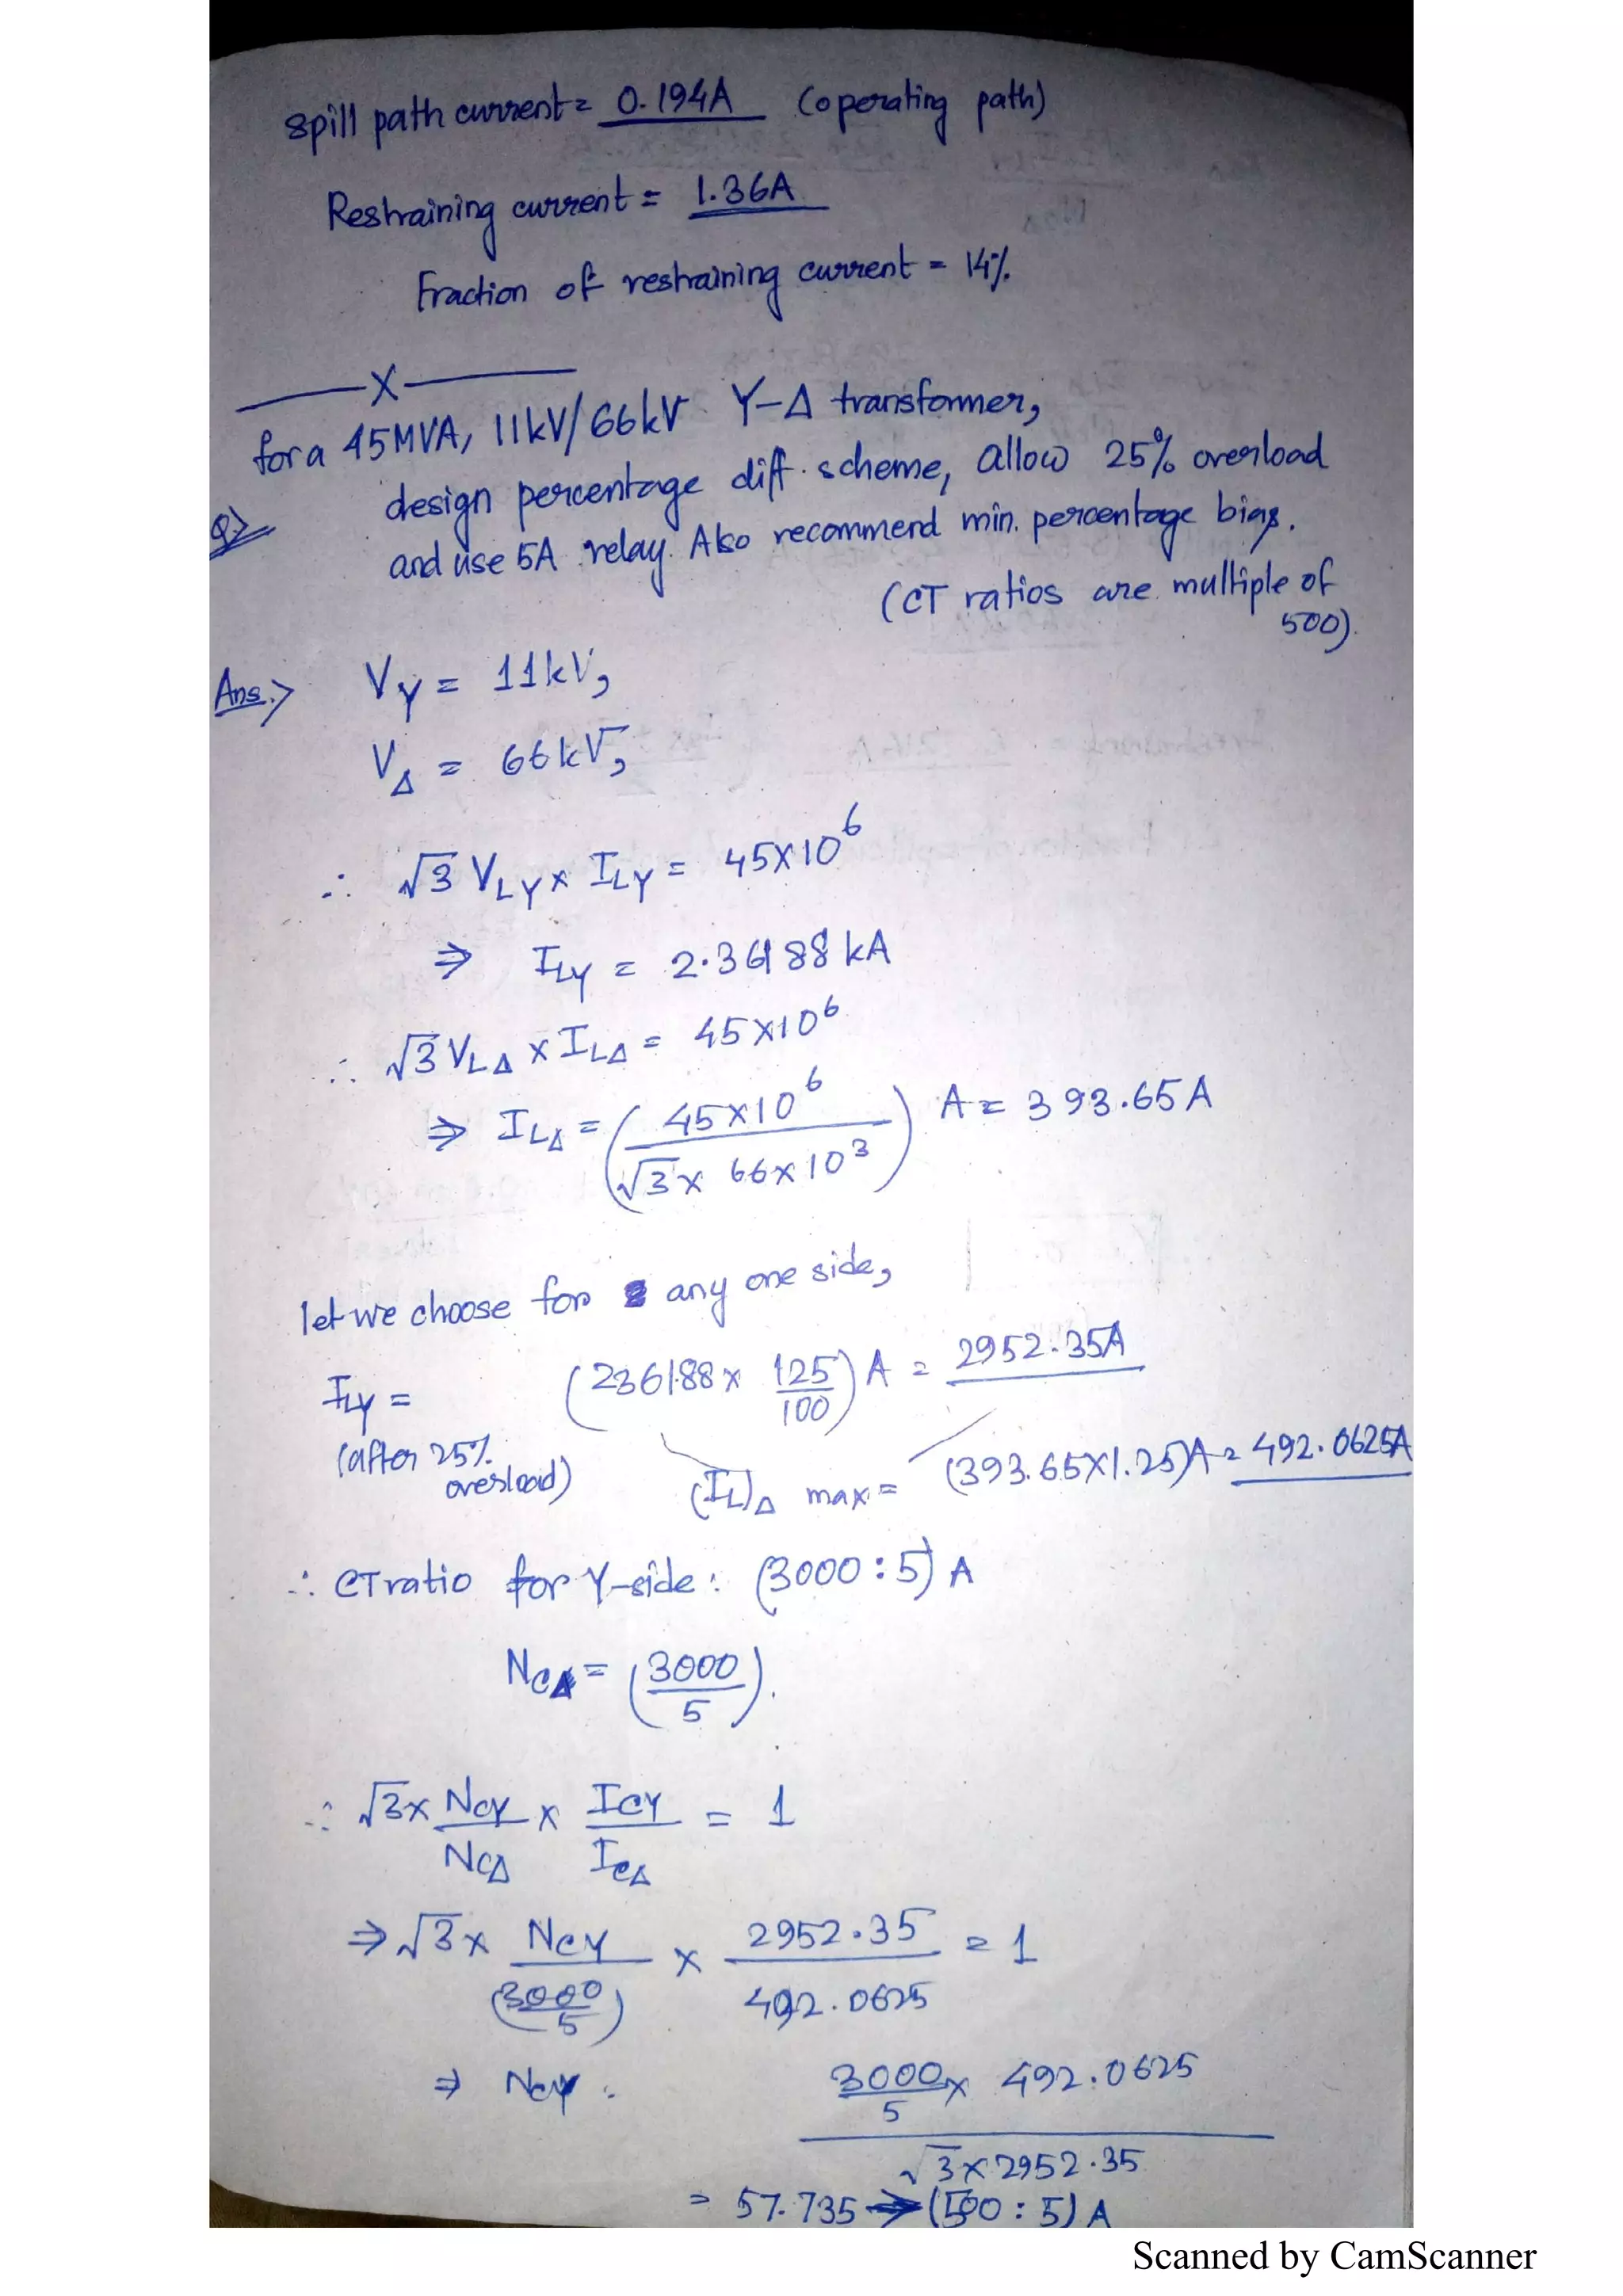 Spill path current = 0.194A (operating path)
Restraining current = 1.36A
Fraction of restraining current = 14%.
—X—
for a 45MVA, 11kV/66kV Y-Δ transformer,
Q> design percentage diff. scheme, allow 25% overload
and use 5A relay. Also recommend min. percentage bias.
(CT ratios are multiple of
500).
Ans.> VY = 11kV,
VΔ = 66kV,
∴ √3 VLY × ILY = 45×10^6
⇒ ILY = 2.36188 kA
∴ √3 VLΔ × ILΔ = 45×10^6
⇒ ILΔ = (45×10^6 / √3 × 66×10^3) A = 393.65A
let we choose for any one side,
ILY = (2361.88 × 125/100) A = 2952.35A
(after 25% overload) (IL)Δ max = (393.65×1.25)A = 492.0625A
∴ CT ratio for Y-side : (3000:5) A
NCΔ = (3000/5).
∴ √3 × NCY/NCΔ × ICY/ICΔ = 1
⇒ √3 × NCY/(3000/5) × 2952.35/492.0625 = 1
⇒ NCY = 3000/5 × 492.0625 / √3×2952.35
= 57.735 → (500:5) A
Scanned by CamScanner